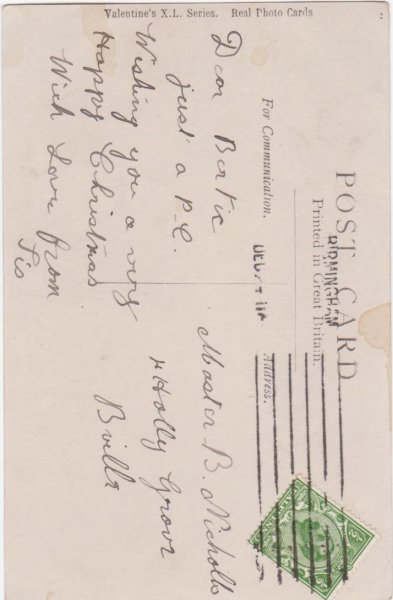 Valentine's X.L. Series. Real Photo Cards
POST CARD
Printed in Great Britain.
BIRMINGHAM
For Communication.
Address.
Dear Bertie
just a P.C.
Wishing you a very
Happy Christmas
With Love from
Sis
Master B. Nicholls
Holly Grove